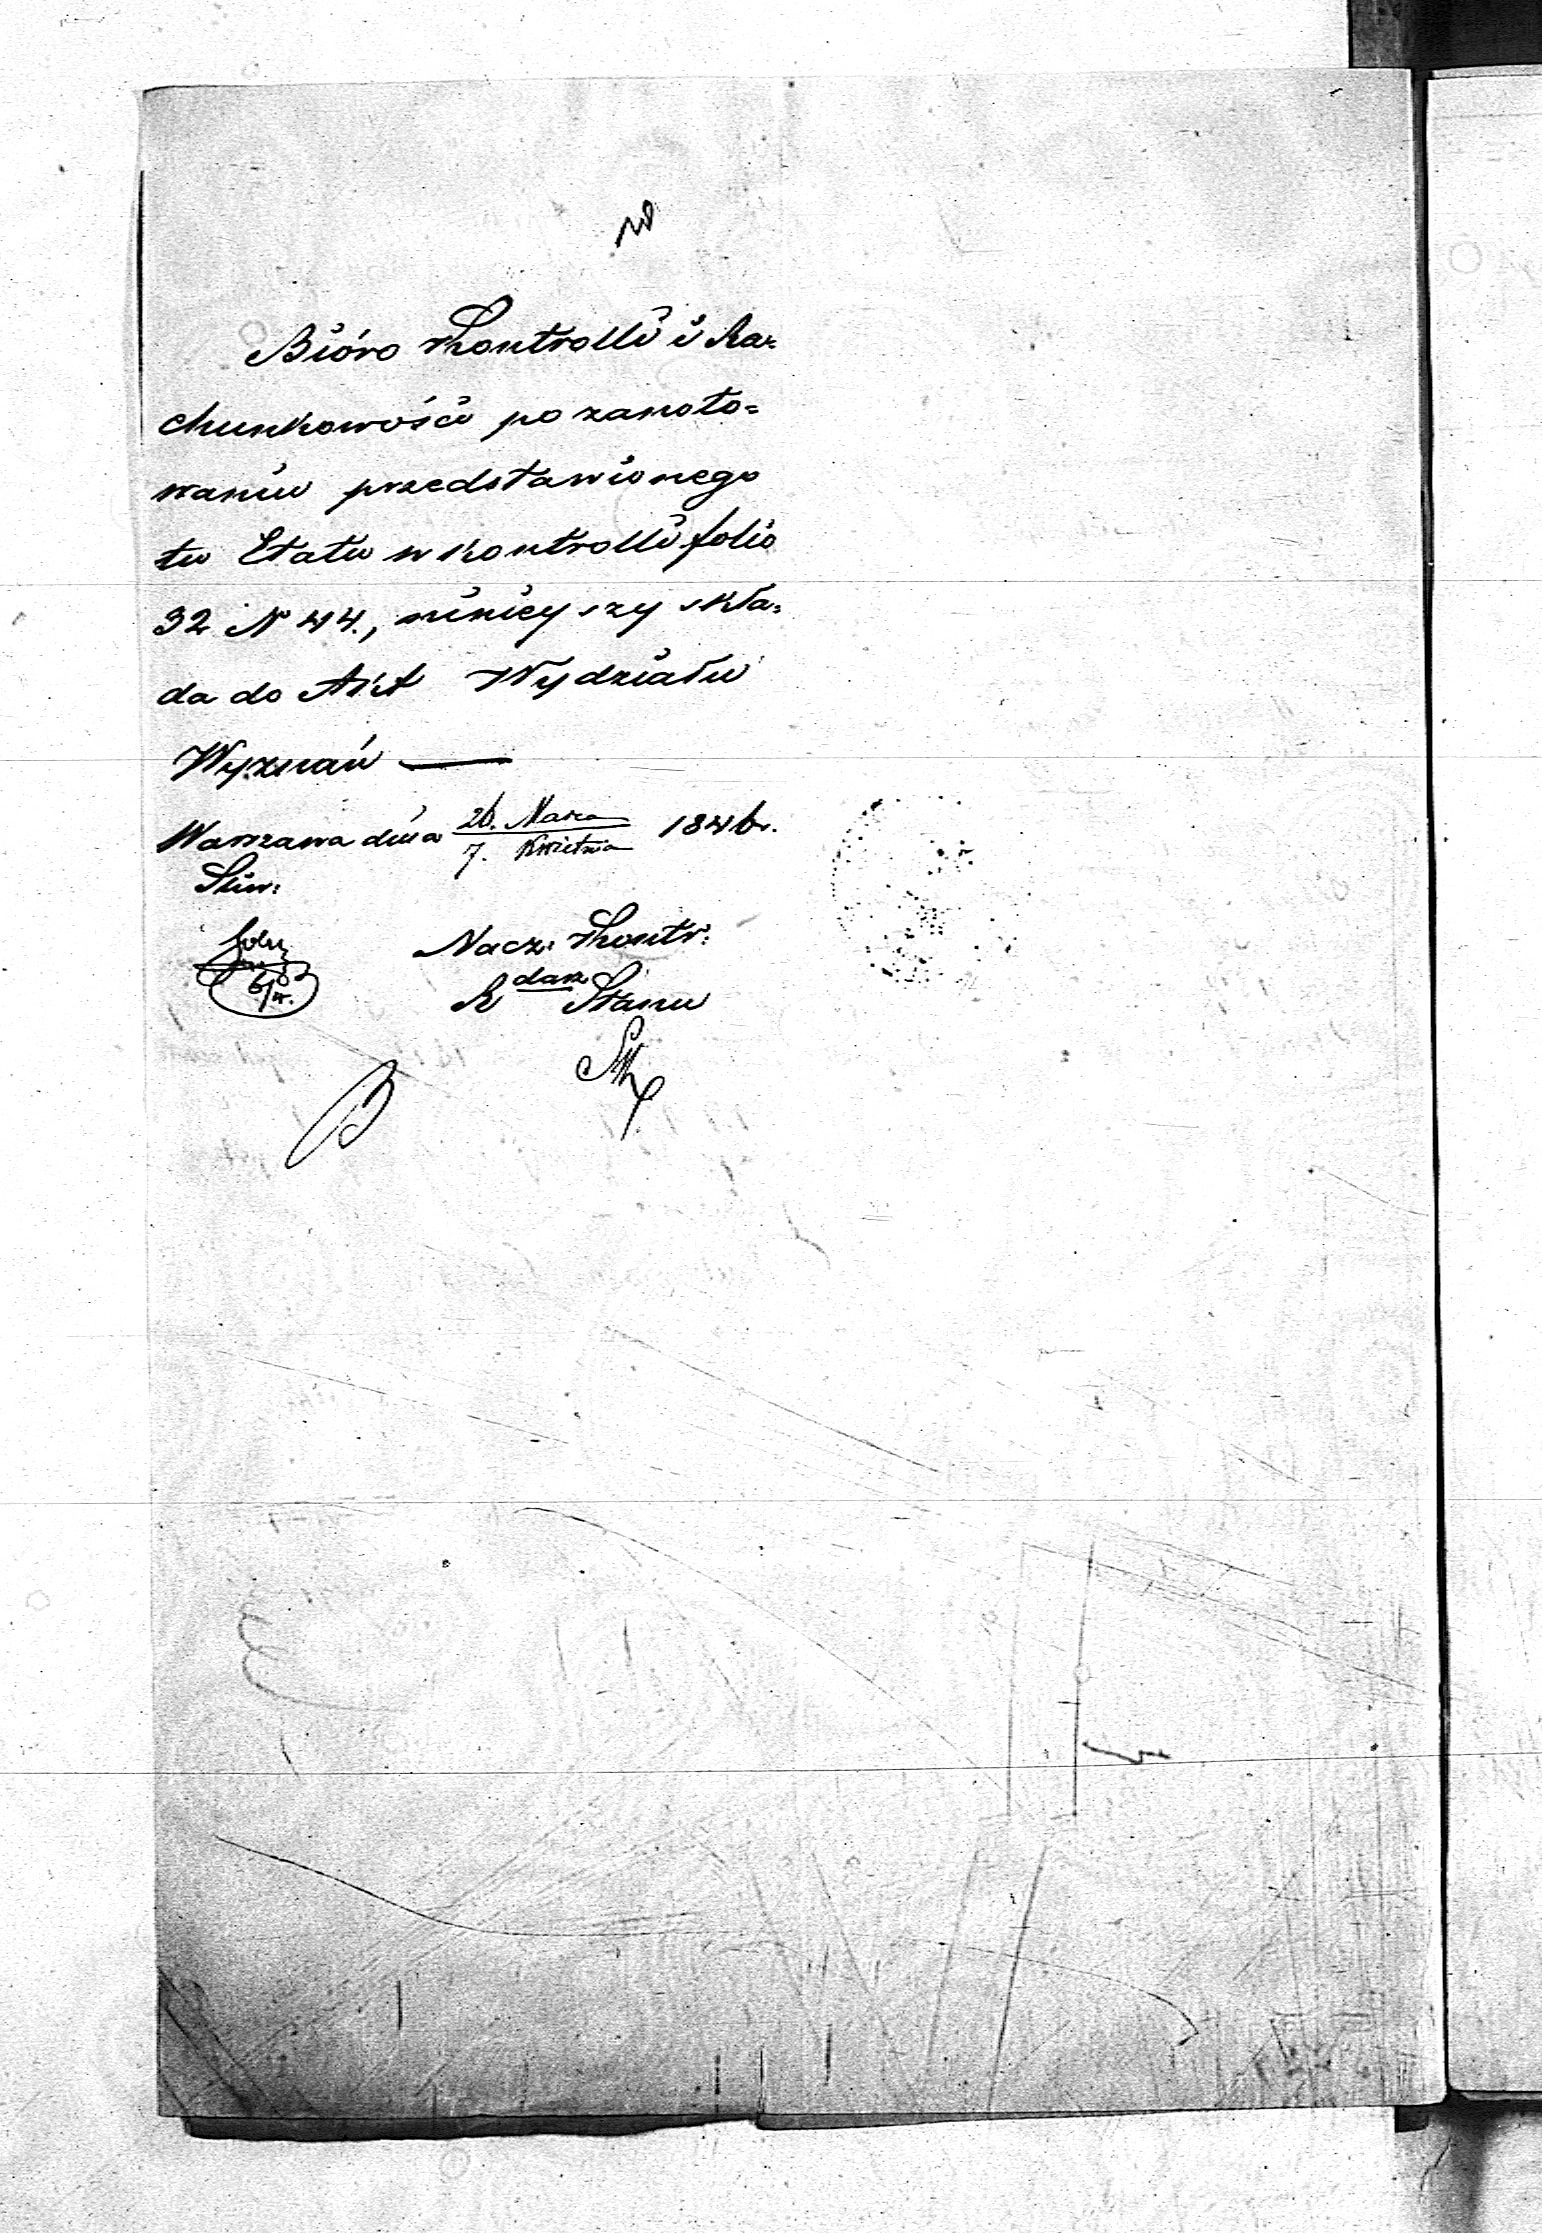 Bióro Kontrolli i Ra=
chunkowości po zanoto=
waniu przedstawionego
tu Etatu w Kontrolli folio
32 N 44., niniejszy skła=
da do Akt Wydziału
Wyznań —
Warszawa dnia 26. Marca / 7. Kwietnia 1846 r.
Nacz: Kontr:
R Stanu